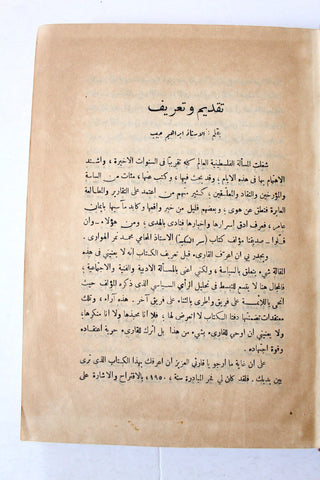 تقديم وتعريف
بقلم: الاستاذ ابراهيم حبيب
شغلت المسألة الفلسطينية العالم كله تقريباً في السنوات الاخيرة ، واشتد
الاهتمام بها في هذه الايام ، وقد بحث فيها ، وكتب عنها ، مئات من الساسة
والمؤرخين والنقاد والمعلقين ، كثير منهم من اعتمد على التقارير والمطالعة
العابرة فتعلق عن هوى ، وبعضهم قليل من خبر واقعها وكابد مآسيها بايمان
عامر ، فعرف ادق اسرارها واخبارها فنادى بالهدى ، ومن هؤلاء — وان
قلّوا — صديقنا مؤلف كتاب ( سر النكبة ) الاستاذ المحامي محمد نمر الهواري .
ويجدر بي ان اعرّف القارىء قبل تعريف الكتاب أنه لا يعنيني في هذه
المقالة شيء يتعلق بالسياسة ، ولكني اعنى بالمسألة الادبية والفنية والاجتماعية ،
فالمجال هنا لا يتسع للتبسط في تحليل الرأي السياسي الذي ذكره المؤلف حيث
انحى باللائمة على فريق واطرى بالثناء على فريق آخر . هذه آراء ، وتلك
معتقدات تضمنتها دفتا الكتاب لا اتعرض لها ، فلا أنا محبذها ولا أنا منكرها،
ولا يعنيني أن أوحي للقارىء بشيء من هذا بل أترك للقارىء حرية اعتقاده
وقوة اجتهاده .
على ان غاية ما أرجو يا قارئي العزيز أن اعرفك بهذا الكتاب الذي ترى
بين يديك . فلقد كان لي فخر المبادرة سنة ، ١٩٥٠ ، بالاقتراح والاشارة على